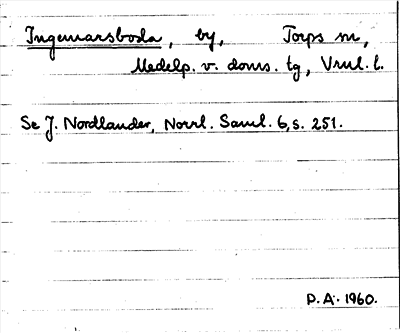 Ingemarsboda, by, Torps sn,
Medelp. v. doms. tg, Vnrl. l.
Se J. Nordlander, Norrl. Saml. 6, s. 251.
P. A. 1960.